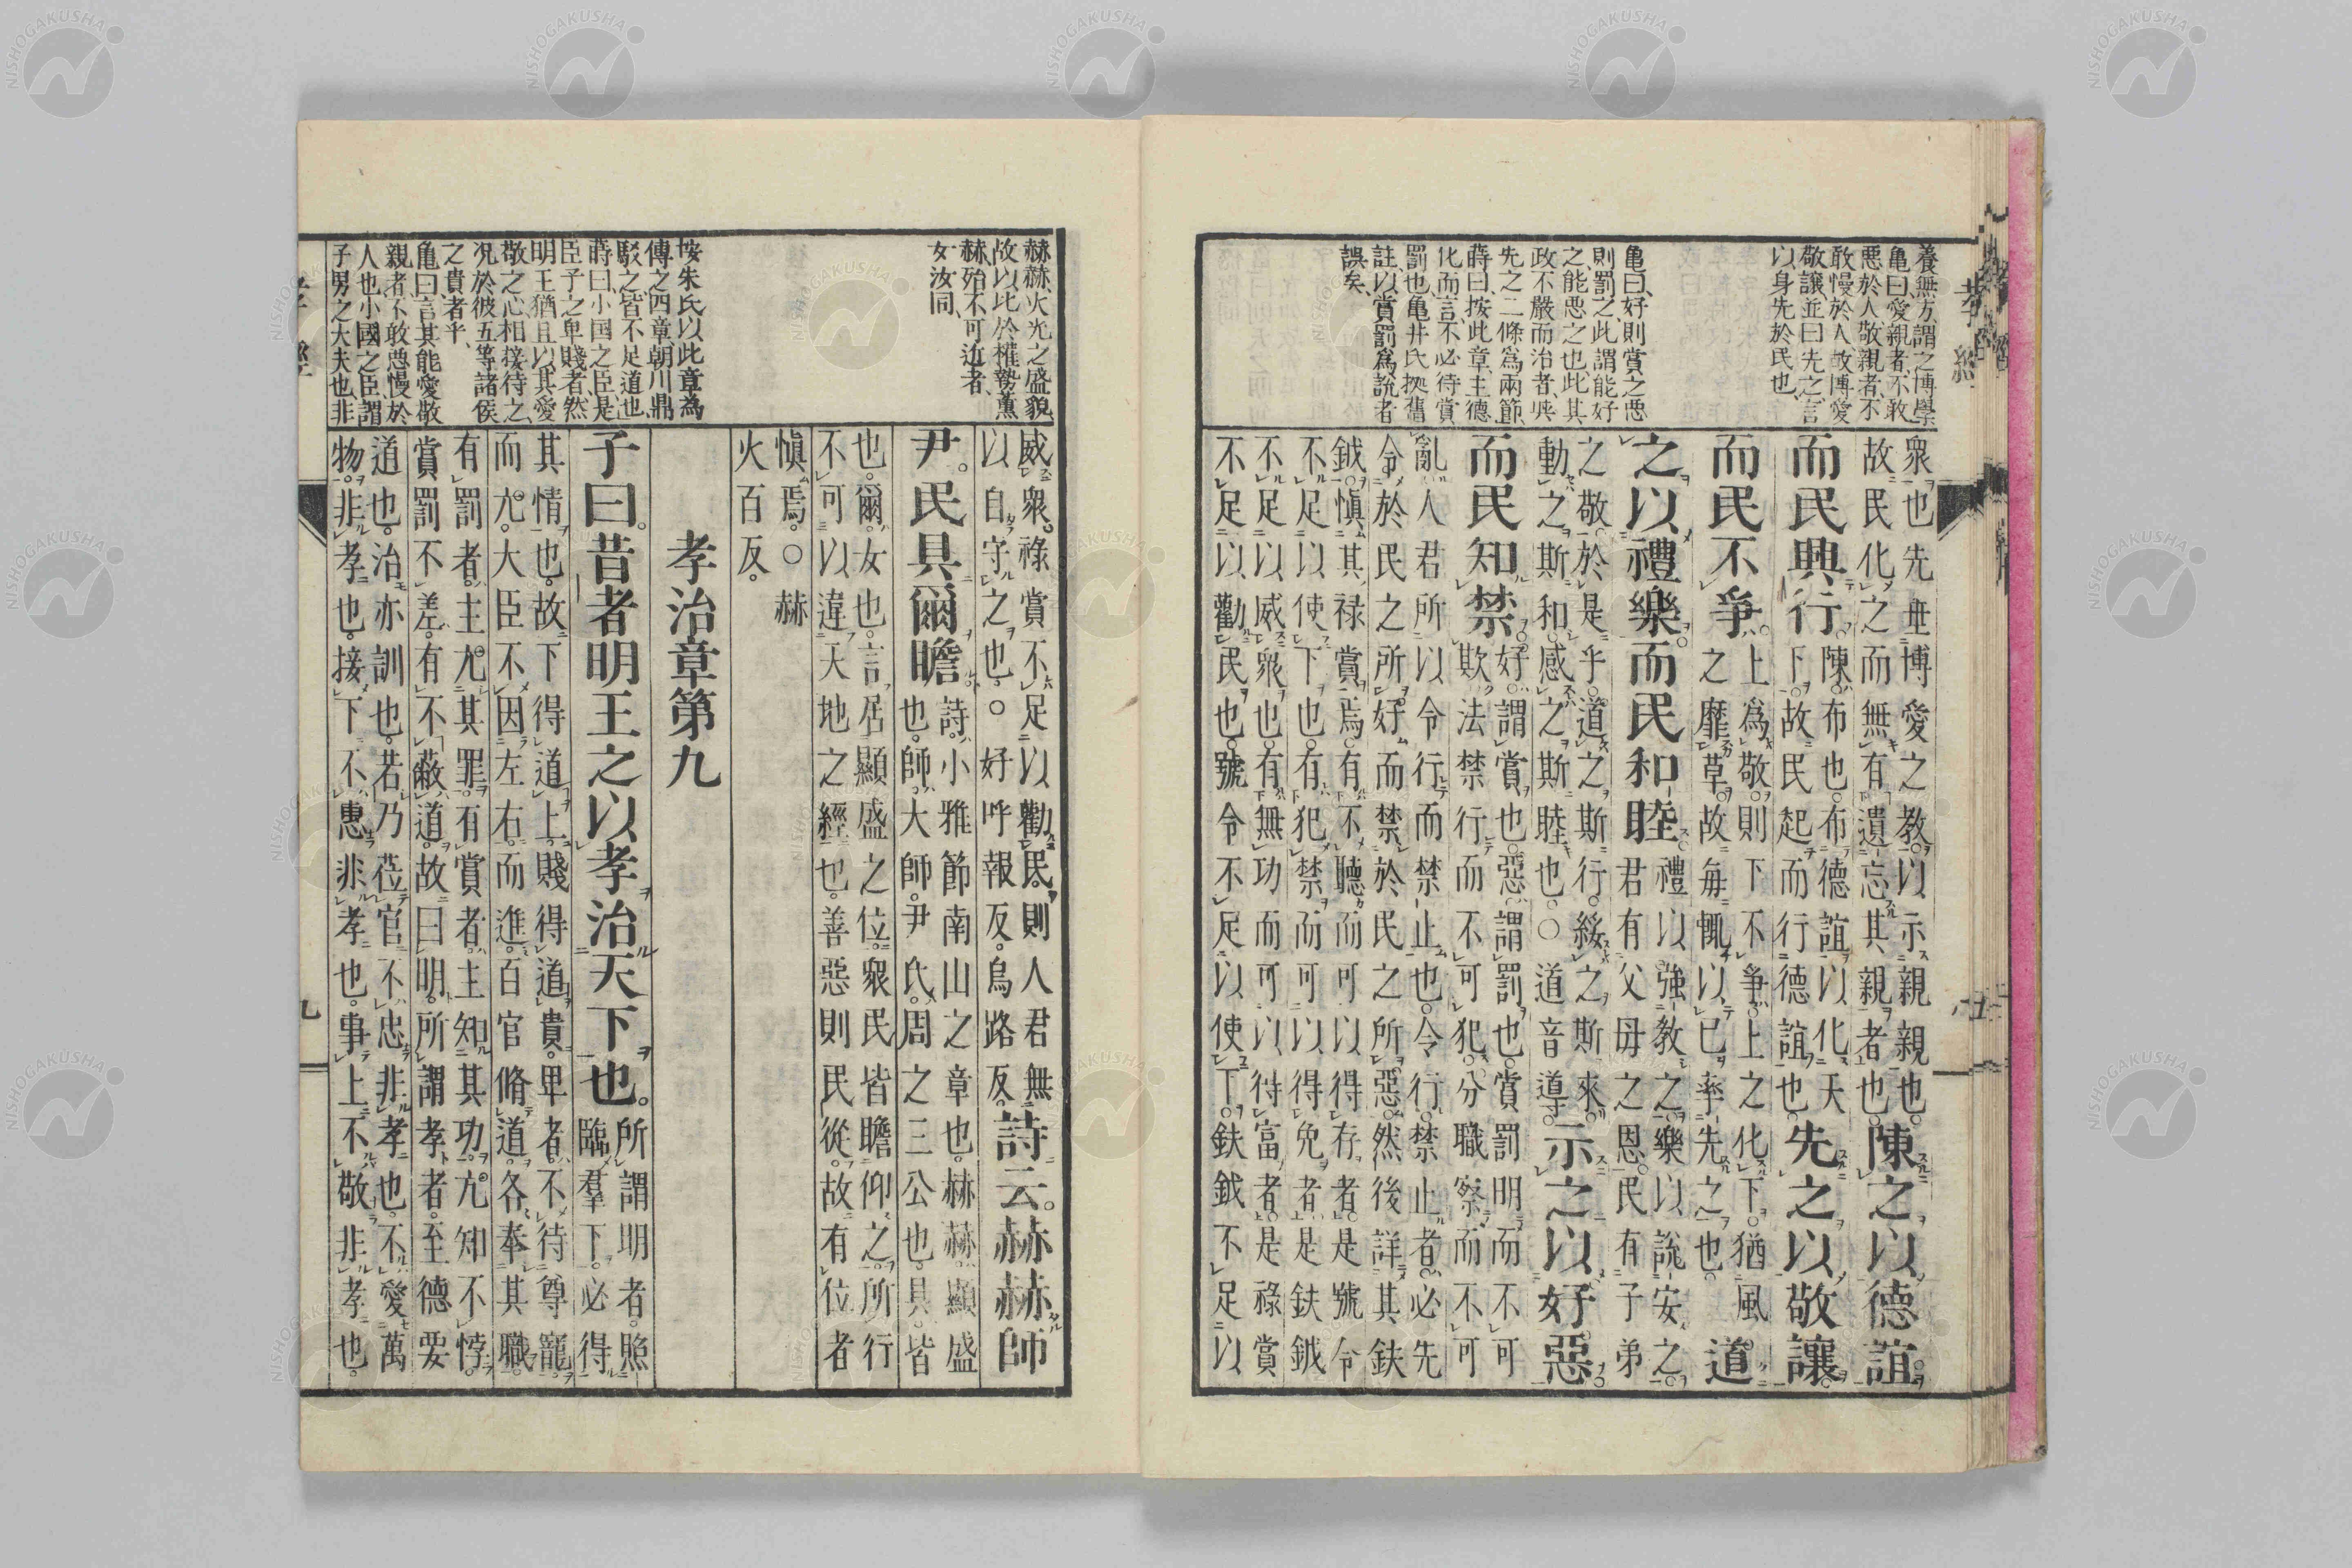 養無方、謂之博學
亀曰、愛親者、不敢
悪於人、敬親者、不
敢慢於人、故博愛
敬讓、並曰先之、言
以身先於民也、
亀曰、好則賞之、悪
則罰之、此謂能好
之、能悪之也、此其
政不嚴而治者、與
先之二條為兩節、
蒋曰、按此章、主德
化而言、不必待賞
罰也、亀井氏拠舊
註、以賞罰為説者
誤矣、
孝經
衆也先垂博愛之教。以示親親也。
故民化之而無有遺忘其親者也。
陳之以德誼
而民興行。
陳布也。布德誼以化天
下。故民起而行德誼也。
先之以敬讓。
而民不爭。
上為敬。則下不爭。上之化下。猶風
之靡草。故毎輙以已率先之也。
道
之以禮樂。而民和睦。
禮以強教之。樂以説安之。
君有父母之恩。民有子弟
之敬。於是乎。道之斯行。綏之斯來。
動之斯和。感之斯睦也。○道音導。
示之以好惡。
而民知禁。
好。謂賞也。惡。謂罰也。賞罰明而不可
欺。法禁行而不可犯。分職察而不可
亂。人君所以令行而禁止也。令行。禁止者。必先
令於民之所好。而禁於民之所惡。然後詳其鈇
鉞。慎其祿賞焉。有不聽而可以得存者。是號令
不足以使下也。有犯禁而可以得免者。是鈇鉞
不足以威衆也。有無功而可以得富者。是祿賞
不足以勸民也。號令不足以使下。鈇鉞不足以
赫赫、火光之盛貌、
故以此於權勢薫
赫、殆不可近者、
女汝同、
按朱氏以此章為
傳之四章、朝川鼎
駁之、皆不足道也、
蒋曰、小国之臣、是
臣子之卑賤者、然
明王猶且以其愛
敬之心、相接待之、
况於彼五等諸侯
之貴者乎、
亀曰、言其能愛敬
親者、不敢悪慢於
人也、小國之臣、謂
子男之大夫也、非
威衆。祿賞不足以勸民。則人君無
以自守之也。○好呼報反。烏路反。
詩云。赫赫師
尹。民具爾瞻
詩。小雅節南山之章也。赫赫。顯盛
也。師。大師。尹氏。周之三公也。具。皆
也。爾。女也。言居顯盛之位。衆民皆瞻仰之。所行
不可以違天地之經也。善惡則民從。故有位者
慎焉。○赫
火百反。
孝治章第九
子曰。昔者明王之以孝治天下也。
所謂明者。照
臨羣下。必得
其情也。故下得道上。賤得道貴。卑者。不待尊寵
而尢。大臣不因左右而進。百官脩道。各奉其職。
有罰者。主尢其罪。有賞者。主知其功。尢知不悖。
賞罰不差。有不蔽道。故曰明。所謂孝者。至德要
道也。治亦訓也。若乃莅官不忠。非孝也。不愛萬
物。非孝也。接下不惠。非孝也。事上不敬。非孝也。